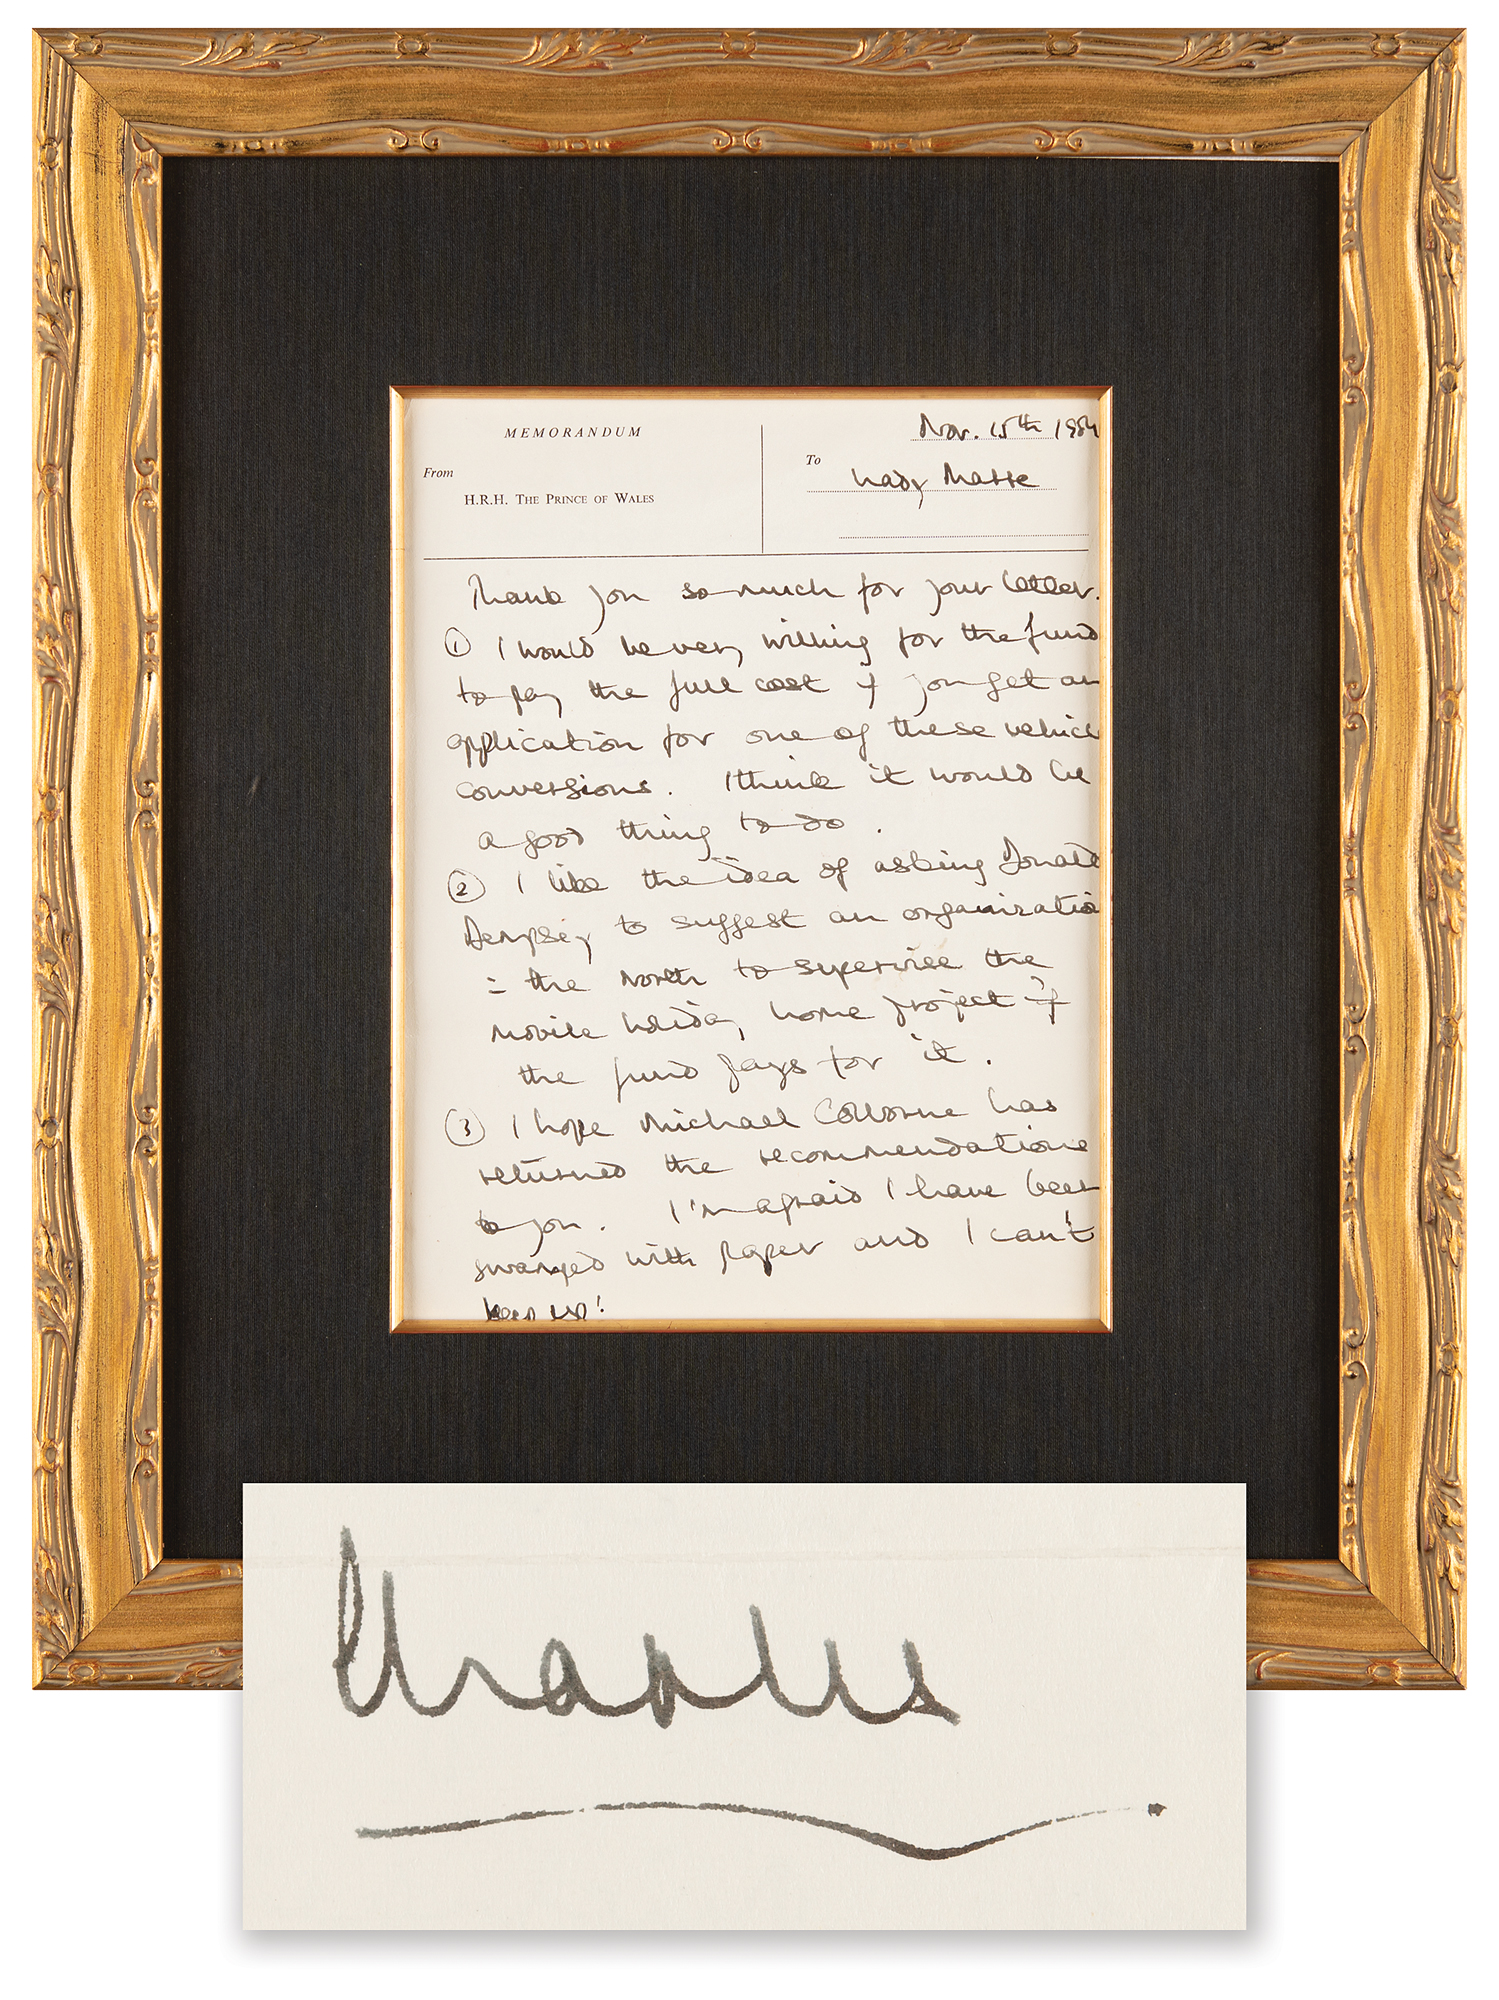 MEMORANDUM
From
H.R.H. THE PRINCE OF WALES
Nov. 15th 1984
To
Lady
Thank you so much for your letter.
① I would be very willing for the fund
to pay the full cost if you get an
application for one of these vehicle
conversions. I think it would be
a good thing to do.
② I like the idea of asking Donald
Dempsey to suggest an organizatio
= the North to supervise the
mobile holiday home project if
the fund pays for it.
③ I hope Michael Colborne has
returned the recommendations
to you. I'm afraid I have been
swamped with paper and I can't
keep up!
Charles